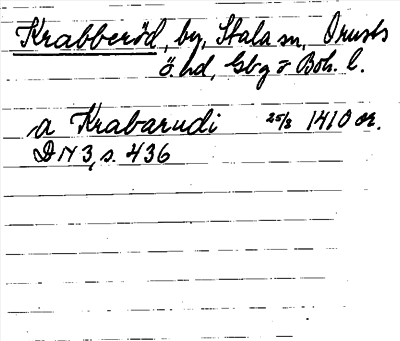 Krabberöd, by, Stala sn, Orusts
ö. hd, Gbg o Boh. l.
a Krabarudi 25/3 1410 or.
DN 3, s. 436